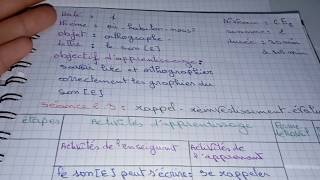 Date : 1
Niveau : CE2
Thème : où habitons-nous?
semaine : 1
objet : orthographe
durée : 30 min
titre : le son [E]
objectif d'apprentissage :
savoir lire et orthographier
correctement les graphies du
son [E]
Séance 2.3 : rappel - réinvestissement
étapes
Activités d'apprentissage
Activités de l'enseignant
Activités de
l'apprenant
le son [E] peut s'écrire :
se rappeler